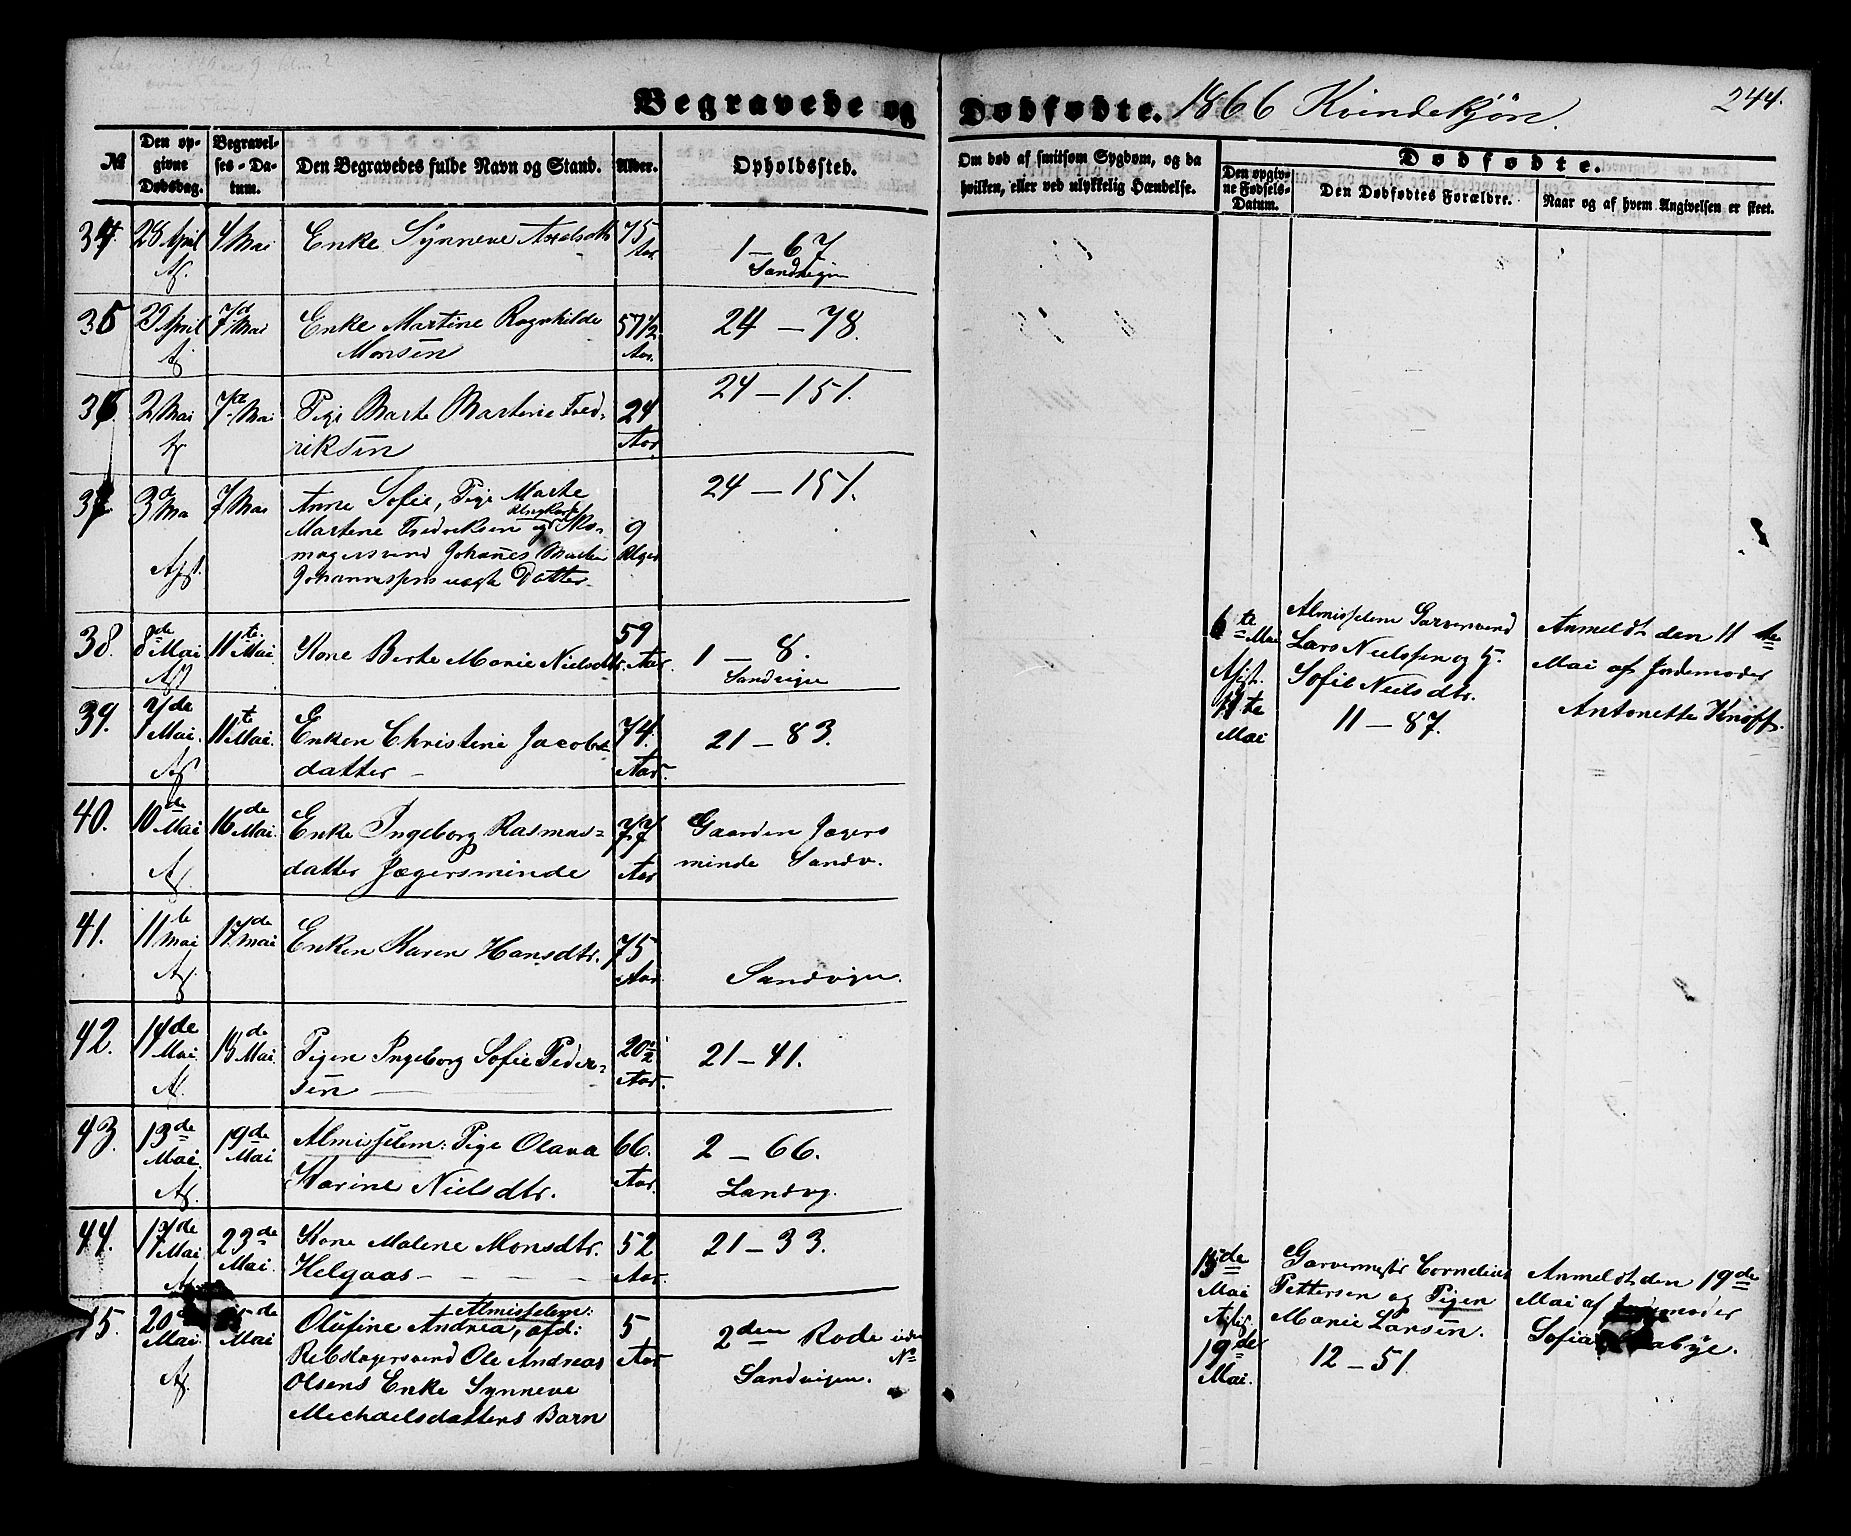 Begravede og Dødfødte. 1866 Kvindekjøn. 244.
№
Den opgivne Dødsdag.
Begravelses-Datum.
Den Begravedes fulde Navn og Stand.
Alder.
Opholdssted.
Om død af smitsom Sygdom, og da hvilken, eller ved ulykkelig Hændelse.
Dødfødte.
Den opgivne Fødsels-Datum.
Den Dødfødtes Forældre.
Naar og af hvem Angivelsen er skeet.
34. 28 April 4 Mai Enke Synneve Axelsdtr 75 Aar. 1 — 67
Sandvigen
35 29 April 7de Mai Enke Martine Ragnhilde 57 1/2 Aar. 24 — 78.
Monsen
36. 2 Mai 7de Mai Pige Marte Martine Fred- 24 Aar 24 — 151.
riksen
37. 3d Mai 7 Mai Anne Sofie, Pige Marte 24 — 151.
Martine Fredriksen og Sko- 9
magersvend Johannes Martin Uger
Johannessens uægte Datter
38. 8de Mai 11te Mai. Kone Berte Marie Nielsdtr. 59 Aar. 1 — 8.
Sandvigen
39. 7de Mai. 11te Mai. Enken Christine Jacobs- 74. Aar. 21 — 83.
datter —
40. 10de Mai 16de Mai. Enke Ingeborg Rasmus= 77 Aar Gaarden Jægers
datter Jægersminde minde Sandv.
41. 11te Mai 17de Mai Enken Karen Hansdtr. 75 Aar. Sandvigen.
42. 14de Mai. 18de Mai. Pigen Ingeborg Sofie Peder- 20 1/2 Aar. 21 — 41.
sen —
43. 13de Mai. 19de Mai Almisselem: Pige Olava 66. Aar. 2 — 66.
Karine Nielsdtr. Sandvg.
44. 17de Mai 23de Mai. Kone Malene Monsdtr. 52 Aar. 21 — 33.
Helgaas —
45. 20de Mai. 25de Mai Almisselem:
Olufine Andrea, afd: 5 Aar 2den Rode uden №
Rebslagersvend Ole Andreas Sandvigen.
Olsens Enke Synneve
Michaelsdatters Barn
6te Mai Almisselem Garversvend Anmeldt den 11te
Lars Nielssen og H. Mai af Jordemoder
Sofie Nielsdtr. Antonette Knoff.
11te Mai 11 — 87.
15de Mai Garvermestr Cornelius Anmeldt den 19de
Pettersen og Pigen Mai af Jordemoder
Marie Larsen. Sofia
19de Mai. 12 — 51.